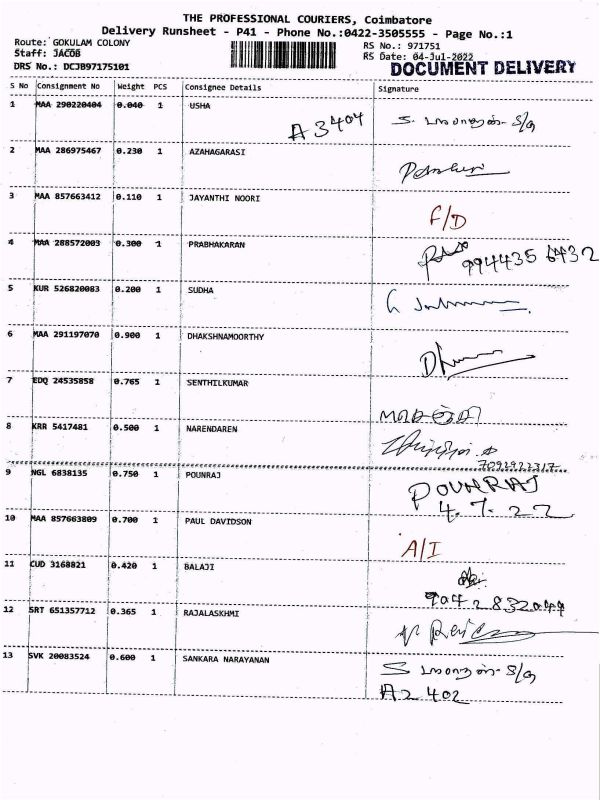 THE PROFESSIONAL COURIERS, Coimbatore
Delivery Runsheet - P41 - Phone No.:0422-3505555 - Page No.:1
Route: GOKULAM COLONY RS No.: 971751
Staff: JACOB RS Date: 04-Jul-2022
DRS No.: DCJB97175101 DOCUMENT DELIVERY
S No Consignment No Weight PCS Consignee Details Signature
1 MAA 290220404 0.040 1 USHA
A 3404
2 MAA 286975467 0.230 1 AZAHAGARASI
3 MAA 857663412 0.110 1 JAYANTHI NOORI
F/D
4 MAA 288572003 0.300 1 PRABHAKARAN
994435 6432
5 KUR 526820083 0.200 1 SUDHA
6 MAA 291197070 0.900 1 DHAKSHNAMOORTHY
7 EDQ 24535858 0.765 1 SENTHILKUMAR
8 KRR 5417481 0.500 1 NARENDAREN
7092922317
9 NGL 6838135 0.750 1 POUNRAJ
POUNRAJ
4.7.22
10 MAA 857663809 0.700 1 PAUL DAVIDSON
A/I
11 CUD 3168821 0.420 1 BALAJI
9042832044
12 SRT 651357712 0.365 1 RAJALASKHMI
13 SVK 20083524 0.600 1 SANKARA NARAYANAN
A2 402